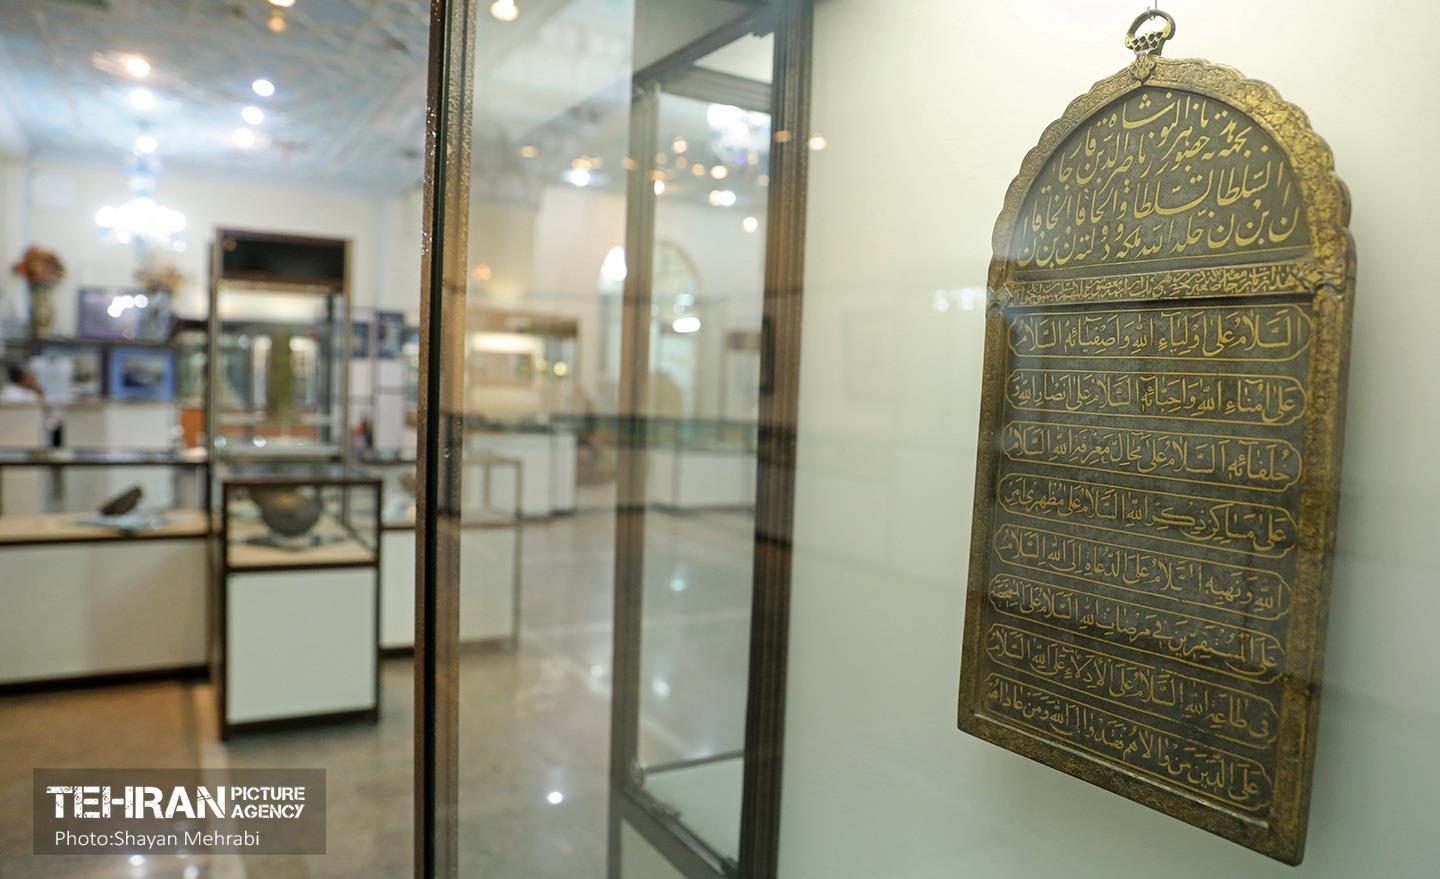 السلطان السلطان والخاقان الخاقان
ناصرالدین شاه قاجار
بن بن خلد الله ملکه و دولته بن بن
السَّلامُ عَلیٰ اَولِیاءِ اللهِ وَ اَصفِیائِهِ السَّلامُ
عَلیٰ اُمَناءِ اللهِ وَ اَحِبّائِهِ السَّلامُ عَلیٰ اَنصارِ اللهِ وَ
خُلَفائِهِ السَّلامُ عَلیٰ مَحالِّ مَعرِفَةِ اللهِ السَّلامُ
عَلیٰ مَساکِنِ ذِکرِ اللهِ السَّلامُ عَلیٰ مُظهِری اَمرِ
اللهِ وَ نَهیِهِ السَّلامُ عَلَی الدُّعاةِ اِلَی اللهِ السَّلامُ
عَلَی المُستَقِرّینَ فی مَرضاتِ اللهِ السَّلامُ عَلَی
فی طاعَةِ اللهِ السَّلامُ عَلَی الاَدِلّاءِ عَلَی اللهِ السَّلامُ
عَلَی الَّذینَ مَن والاهُم فَقَد والَی اللهَ وَ مَن عاداهُم
TEHRAN PICTURE AGENCY
Photo:Shayan Mehrabi